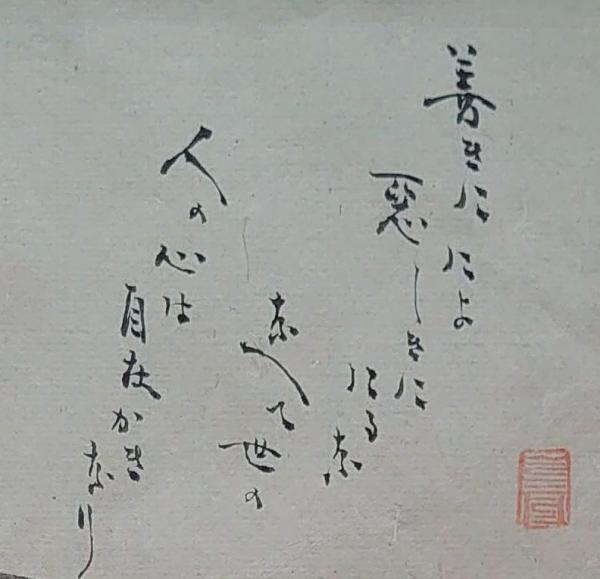 善きに
によ
悪しきに
にるな
なへて世の
人の心は
自在かき
なり